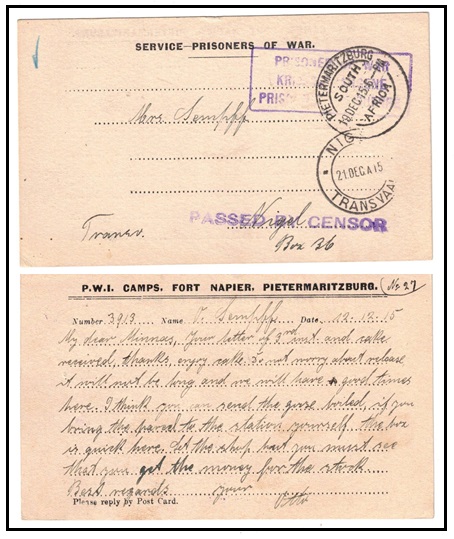 SERVICE-PRISONERS OF WAR.
PRISONE WAR
KRI NE
PRISO
PIETERMARITZBURG
SOUTH AFRICA
19 DEC 15
Mrs. Sempff
NIG
21. DEC. A 15
TRANSVAA
PASSED BY CENSOR
Nigel
Transv.
Box 36
P.W.I. CAMPS, FORT NAPIER, PIETERMARITZBURG. No 27
Number 3913 Name O. Sempff Date 12.12.15
My dear Minnas, Your letter of 3rd inst and cake
received, thanks, enjoy cake. Do not worry about release
it will not be long and we will have a good times
here. I think you can send the goose boiled, if you
bring the parcel to the station yourself the box
is quick here. Let the shop but you must see
that you get the money for the stock
Best regards your
Please reply by Post Card. Otto